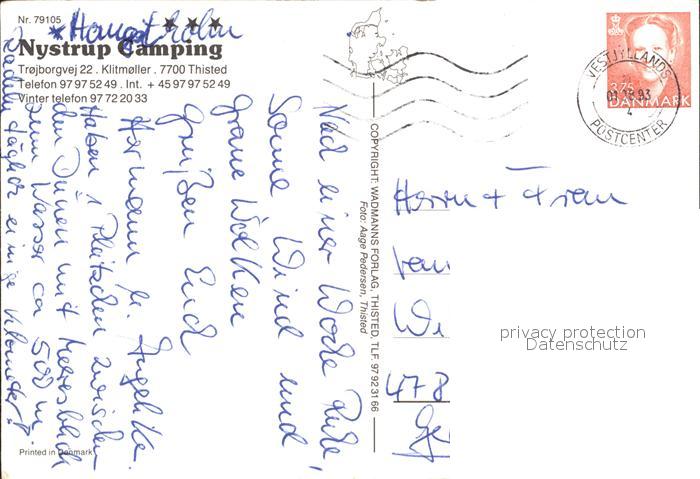 Nr. 79105
Nystrup Camping
Trøjborgvej 22 . Klitmøller . 7700 Thisted
Telefon 97 97 52 49 . Int. + 45 97 97 52 49
Vinter telefon 97 72 20 33
Nach einer Woche Ruhe,
Sonne Wind und
graue Wolken
Grüßen Euch
Hermann u. Angelika.
Haben 1 Plätzchen zwischen
den Dünen mit Meeresblick
zum Wasser ca 500 m.
Radeln täglich einige Kilometer.
COPYRIGHT: WADMANNS FORLAG, THISTED, TLF. 97 92 31 66
Foto: Aage Pedersen, Thisted
Printed in Denmark
VESTJYLLANDS
93
4
POSTCENTER
375
DANMARK
Herrn + Frau
Wi
478
Ge
privacy protection
Datenschutz